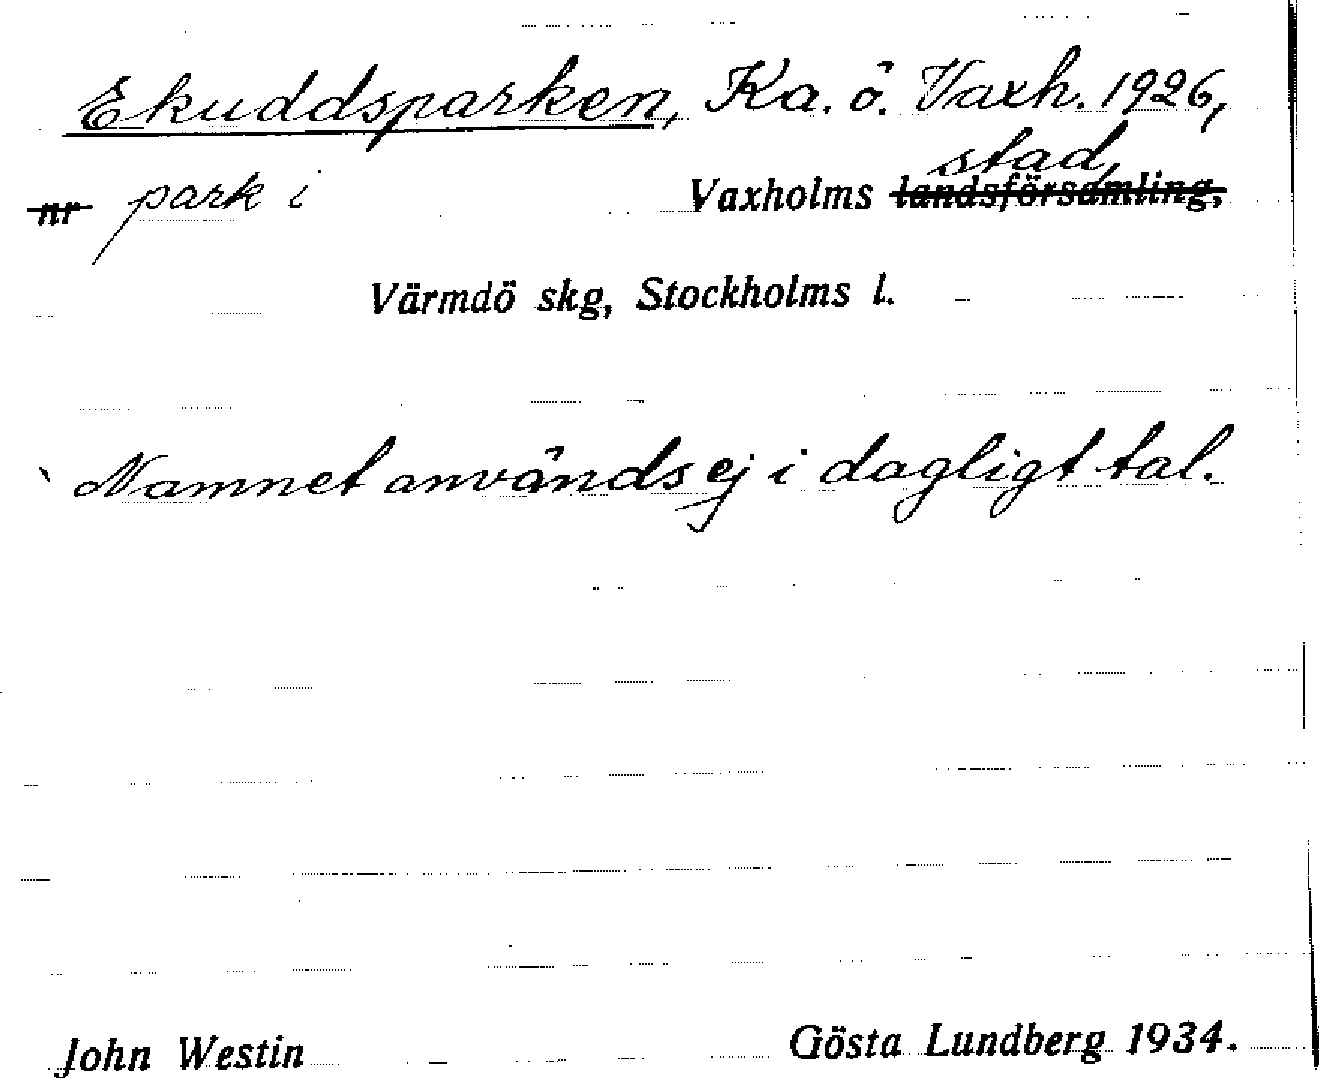 Ekuddsparken, Ka. ö. Vaxh. 1926,
stad,
nr park i Vaxholms landsförsamling,
Värmdö skg, Stockholms l.
Namnet används ej i dagligt tal.
John Westin Gösta Lundberg 1934.